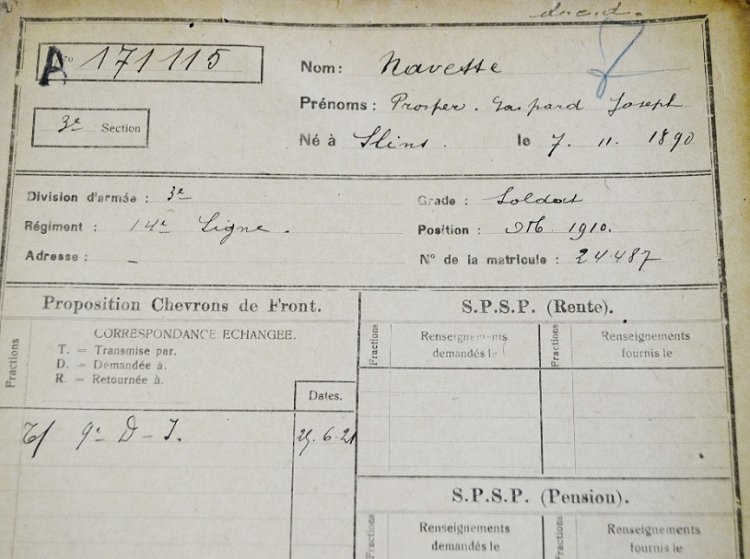 A No 171115
3e Section
Nom: Navette
Prénoms: Prosper. Gaspard Joseph
Né à Slins. le 7. 11. 1890
Division d'armée: 3e
Régiment: 14e Ligne.
Adresse: -
Grade: Soldat
Position: M 1910.
No de la matricule: 24487
Proposition Chevrons de Front.
Fractions
CORRESPONDANCE ECHANGEE.
T. = Transmise par.
D. = Demandée à.
R. = Retournée à.
Dates.
T/ 9e D-I. 25.6.21
S.P.S.P. (Rente).
Fractions
Renseignements demandés le
Fractions
Renseignements fournis le
S.P.S.P. (Pension).
Fractions
Renseignements demandés le
Fractions
Renseignements fournis le